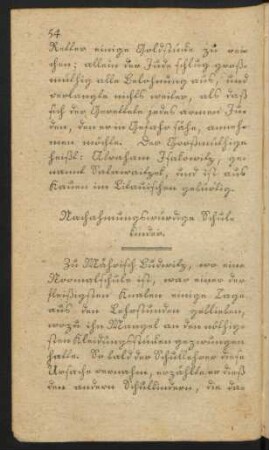 54
Retter einige Goldstücke zu rei-
chen; allein der Jude schlug groß-
müthig alle Belohnung aus, und
verlangte nichts weiter, als daß
sich der Gerettete jedes armen Ju-
den, den er in Gefahr sähe, anneh-
men möchte. Der Großmüthige
heißt: Abraham Isakowitz, ge-
nannt, und ist aus
Kauen im Litauischen gebürtig.
Nachahmungswürdige Schul-
kinder.
Zu Mährisch Budwitz, wo eine
Normalschule ist, war einer der
fleißigsten Knaben einige Tage
aus den Lehrstunden geblieben,
wozu ihn Mangel an den nöthig-
sten Kleidungsstücken gezwungen
hatte. So bald der Schullehrer diese
Ursache vernahm, erzählte er dieß
den andern Schulkindern, die da-